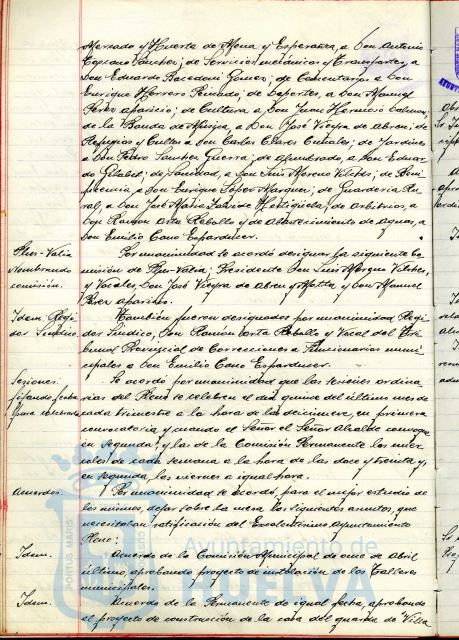 Mercado y Huerta de Mena y Esperanza, a Don Antonio
Toscano Sanchez; de Servicios mecánicos y Transportes, a
Don Eduardo Gomez; de Cementerios a Don
Enrique Herrero; de Deportes, a Don Manuel
Perez Aparicio; de Cultura a Don Juan Hermoso
de la Banda de Musica, a Don José Vieyra de Abreu; de
Refugios y Cultos a Don Carlos; de Jardines
a Don Pedro Sanchez Guerra; de Alumbrado, a Don Eduar-
do; de Sanidad, a Don Luis Moreno Vilches; de Bene-
ficencia, a Don Enrique Lopez Marquez; de Guarderia Ru-
ral, a Don José Maria; de Arbitrios, a
Don Ramon Orta Rebollo y de Abastecimiento de Aguas, a
Don Emilio Cano
Plus-Valia
Nombrando
comisión.
Por unanimidad se acordó designar la siguiente Co-
misión de Plus-Valia; Presidente Don Luis Vilches,
y Vocales, Don José Vieyra de Abreu y Motta y Don Manuel
Perez Aparicio.
Idem. Regi-
dor Síndico.
También fueron designados por unanimidad, Regi-
dor Síndico, Don Ramón Orta Rebollo y Vocal del Tri-
bunal Provincial de Correcciones a Funcionarios muni-
cipales a Don Emilio Cano
Sesiones.
fijando fecha
para celebrarlas
Se acordó por unanimidad que las sesiones ordina-
rias del Pleno se celebren el dia quince del último mes de
cada trimestre a la hora de las diecinueve, en primera
convocatoria y cuando el Señor el Señor Alcalde convoque
en segunda, y las de la Comisión Permanente los miér-
coles de cada semana a la hora de las doce y treinta y,
en segunda, los viernes a igual hora.
Acuerdos.
Por unanimidad se acordó, para el mejor estudio de
los mismos, dejar sobre la mesa los siguientes asuntos, que
necesitaban ratificación del Excelentísimo Ayuntamiento
Pleno:
Idem.
Acuerdo de la Comisión Municipal de once de Abril
último, aprobando proyecto de instalación de los Talleres
municipales.
Idem.
Acuerdo de la Permanente de igual fecha, aprobando
el proyecto de construcción de la casa del guarda de Villa
Ayuntamiento de
HUELVA
PORTUS MARIS